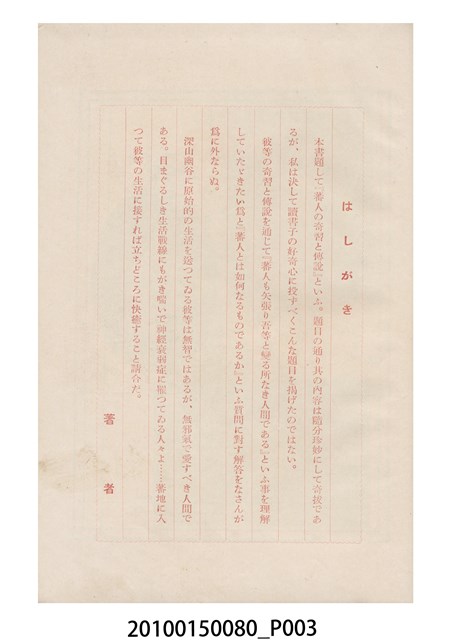 はしがき
本書題して『蕃人の奇習と傳說』といふ。題目の通り其の内容は隨分珍妙にして奇拔であ
るが、私は決して讀書子の好奇心に投ずべくこんな題目を揭げたのではない。
彼等の奇習と傳說を通じて『蕃人も矢張り吾等と變る所なき人間である』といふ事を理解
していたゞきたい爲と『蕃人とは如何なるものであるか』といふ質問に對す解答をなさんが
爲に外ならぬ。
深山幽谷に原始的の生活を送つてゐる彼等は無智ではあるが、無邪氣で愛すべき人間で
ある。目まぐるしき生活戰線にもがき喘いで神經衰弱症に罹つてゐる人々よ……蕃地に入
つて彼等の生活に接すれば立ちどころに快癒すること請合だ。
著者
20100150080_P003